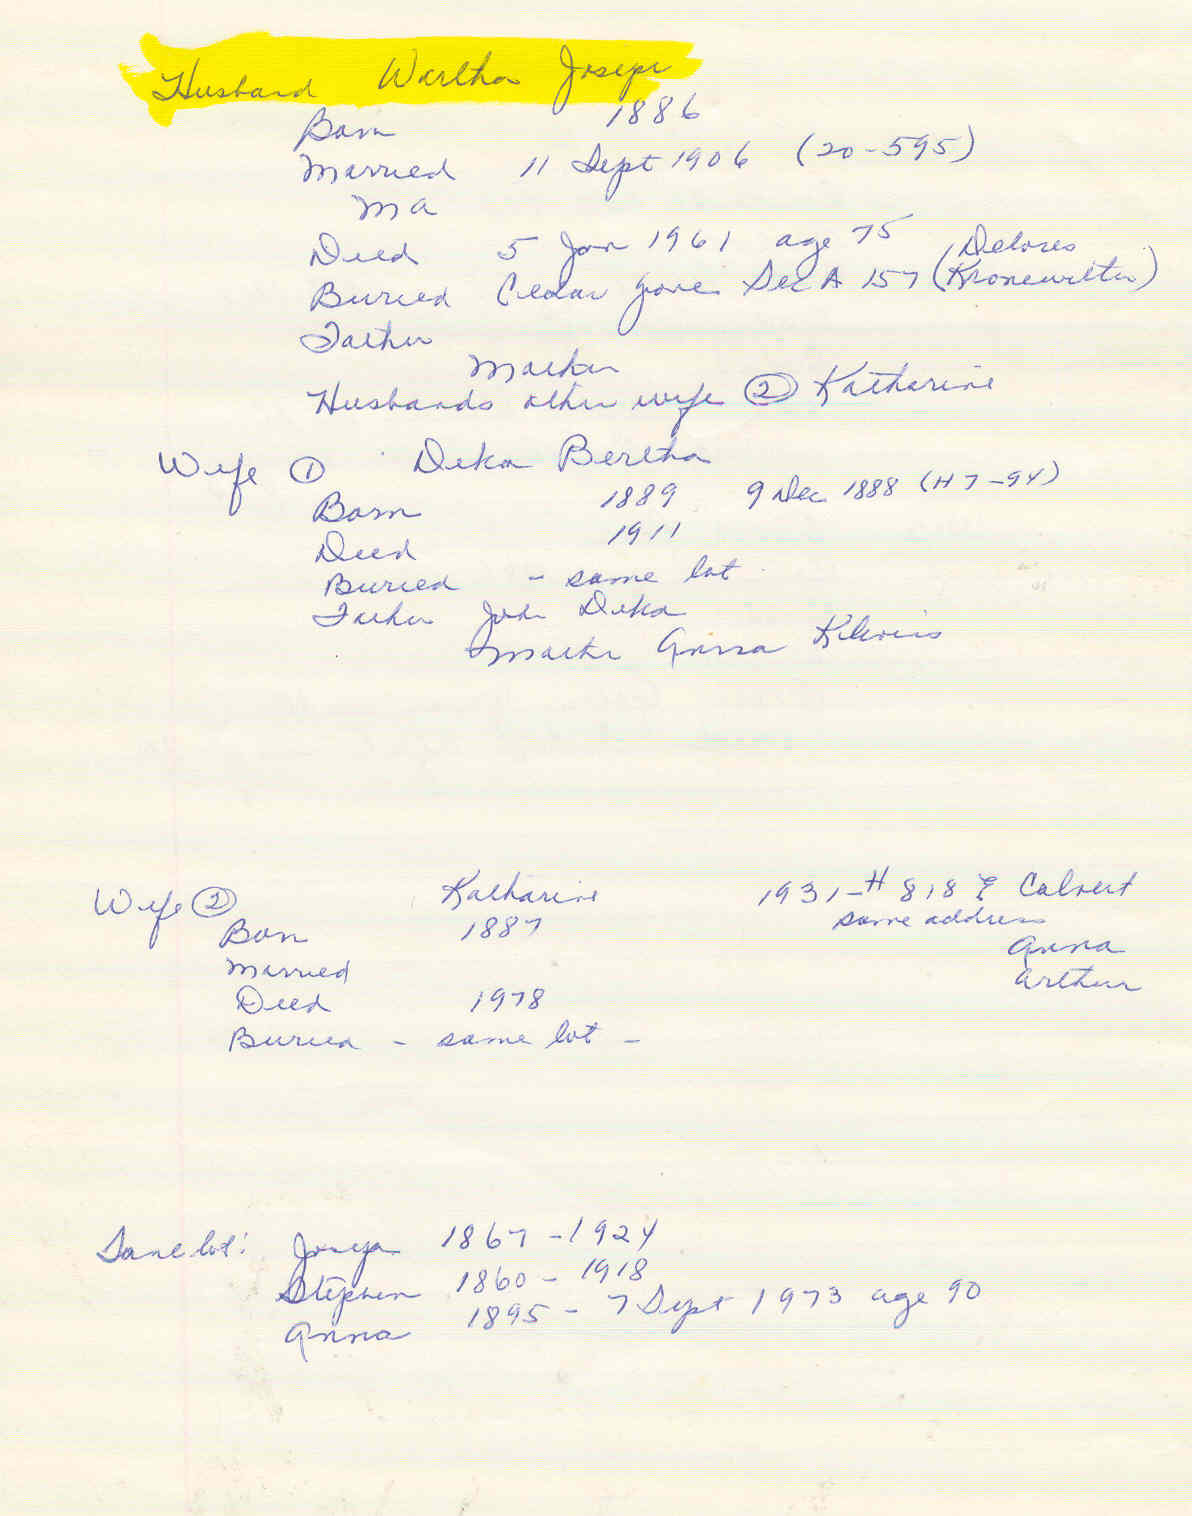 Husband Wartha Joseph
Born 1886
Married 11 Sept 1906 (20-595)
Ma
Died 5 Jan 1961 age 75 Delores
Buried Cedar Grove Sec A 157 (Kronewitter)
Father
Mother
Husbands other wife ② Katharine
Wife ① Deka Bertha
Born 1889 9 Dec 1888 (H7-94)
Died 1911
Buried - same lot
Father John Deka
Mother Anna
Wife ② Katharine 1931-H 818 E Calvert
Born 1887 same address
Married Anna
Died 1978 Arthur
Buried - same lot -
Same lot: 1867-1924
Stephen 1860-1918
Anna 1895-7 Sept 1973 age 90